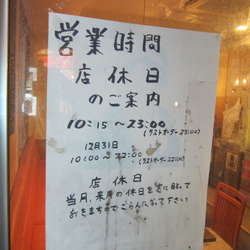 営業時間
店休日
のご案内
10:15~23:00
(ラストオーダー22:00)
12月31日
10:00~22:00
(ラストオーダー
店休日
当月、来月の休日を
おきますのでごらんになって下さい